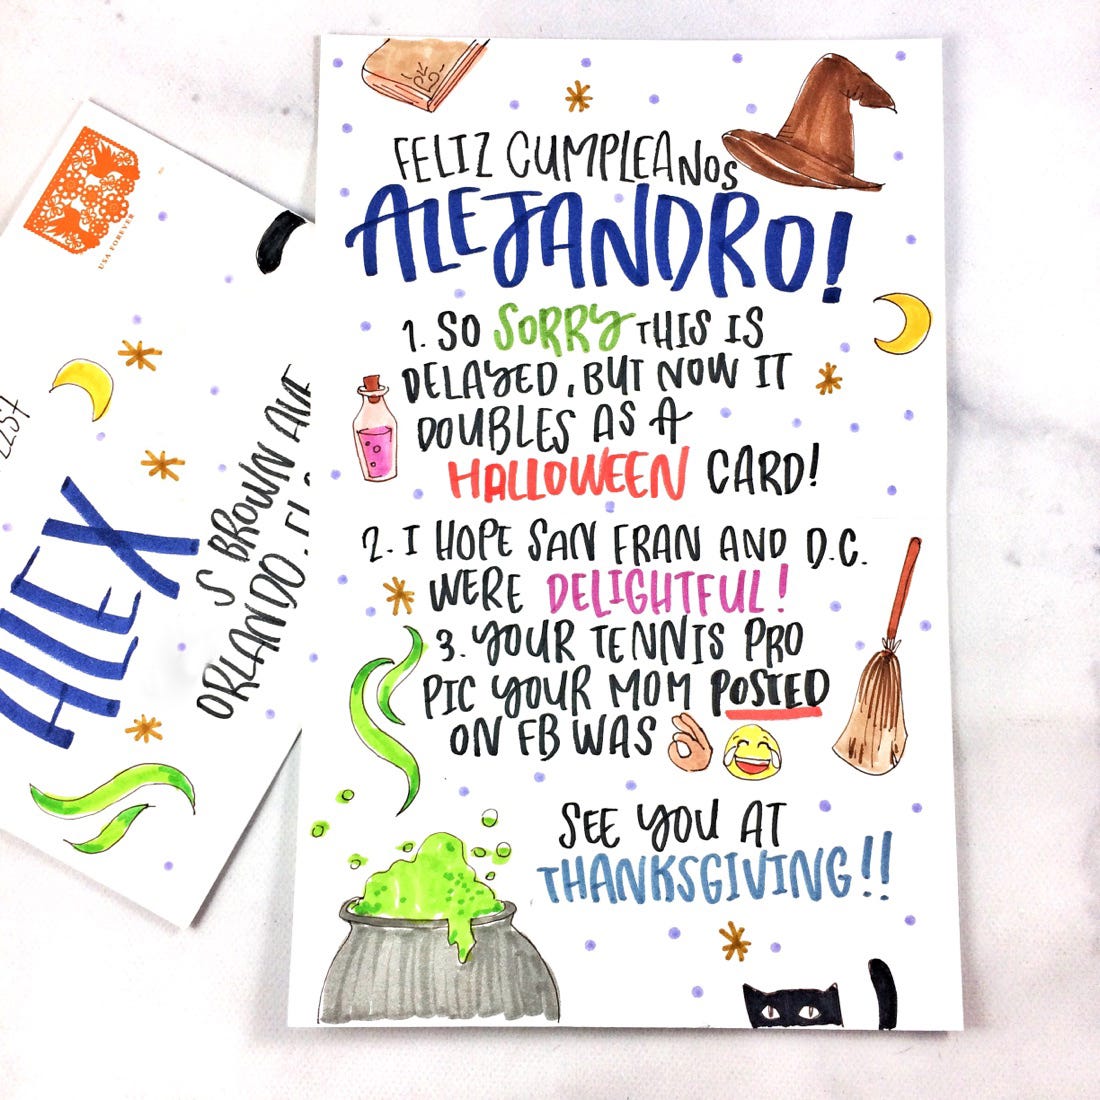 FELIZ CUMPLEANOS
ALEJANDRO!
1. SO SORRY THIS IS
DELAYED, BUT NOW IT
DOUBLES AS A
HALLOWEEN CARD!
2. I HOPE SAN FRAN AND D.C.
WERE DELIGHTFUL!
3. YOUR TENNIS PRO
PIC YOUR MOM POSTED
ON FB WAS 👌😂
SEE YOU AT
THANKSGIVING!!
USA FOREVER
2257
ALEX
S BROWN AVE
ORLANDO, FL